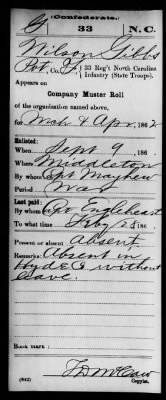 G Confederate.
33 N.C.
Wilson Gibbs
Pvt, Co. F, 33 Reg't North Carolina
Infantry (State Troops).
Appears on
Company Muster Roll
of the organization named above,
for Mch & Apr, 1862
Enlisted:
When Sept 9, 186 .
Where Middleton
By whom Capt Mayhew
Period War
Last paid:
By whom Capt Engleheart
To what time Feby 28, 186 .
Present or absent Absent
Remarks: Absent in
Hyde Co without
leave.
Book mark:
(642)
Copyist.